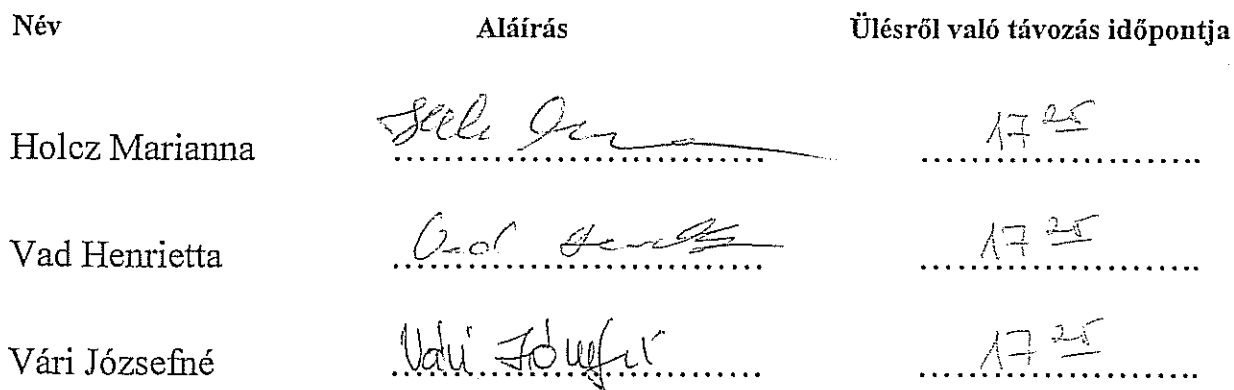 Név Aláírás Ülésről való távozás időpontja
Holcz Marianna 17 25
Vad Henrietta Vad 17 25
Vári Józsefné Vári Józsefné 17 25